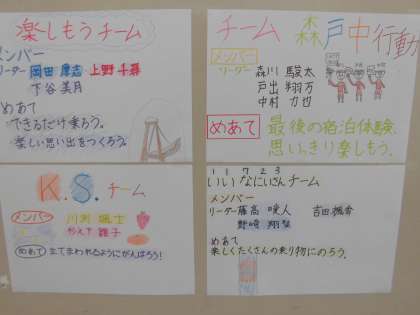 楽しもうチーム
メンバー
リーダー 岡田 厚志 上野 千尋
下谷 美月
めあて
できるだけ乗ろう。
楽しい思い出をつくろう。
チーム 森戸中行動
メンバー
リーダー 森川 駿太
戸出 翔万
中村 力也
めあて 最後の宿泊体験、
思いっきり楽しもう。
K.S.チーム
メンバー 川渕 颯士
杉久下 雛子
めあて 全てまわれるようにがんばろう！
11 7 2 3
いいなにいさんチーム
メンバー
リーダー 藤高 咲人 吉田 楓香
野崎 翔梨
めあて
楽しくたくさんの乗り物にのろう。